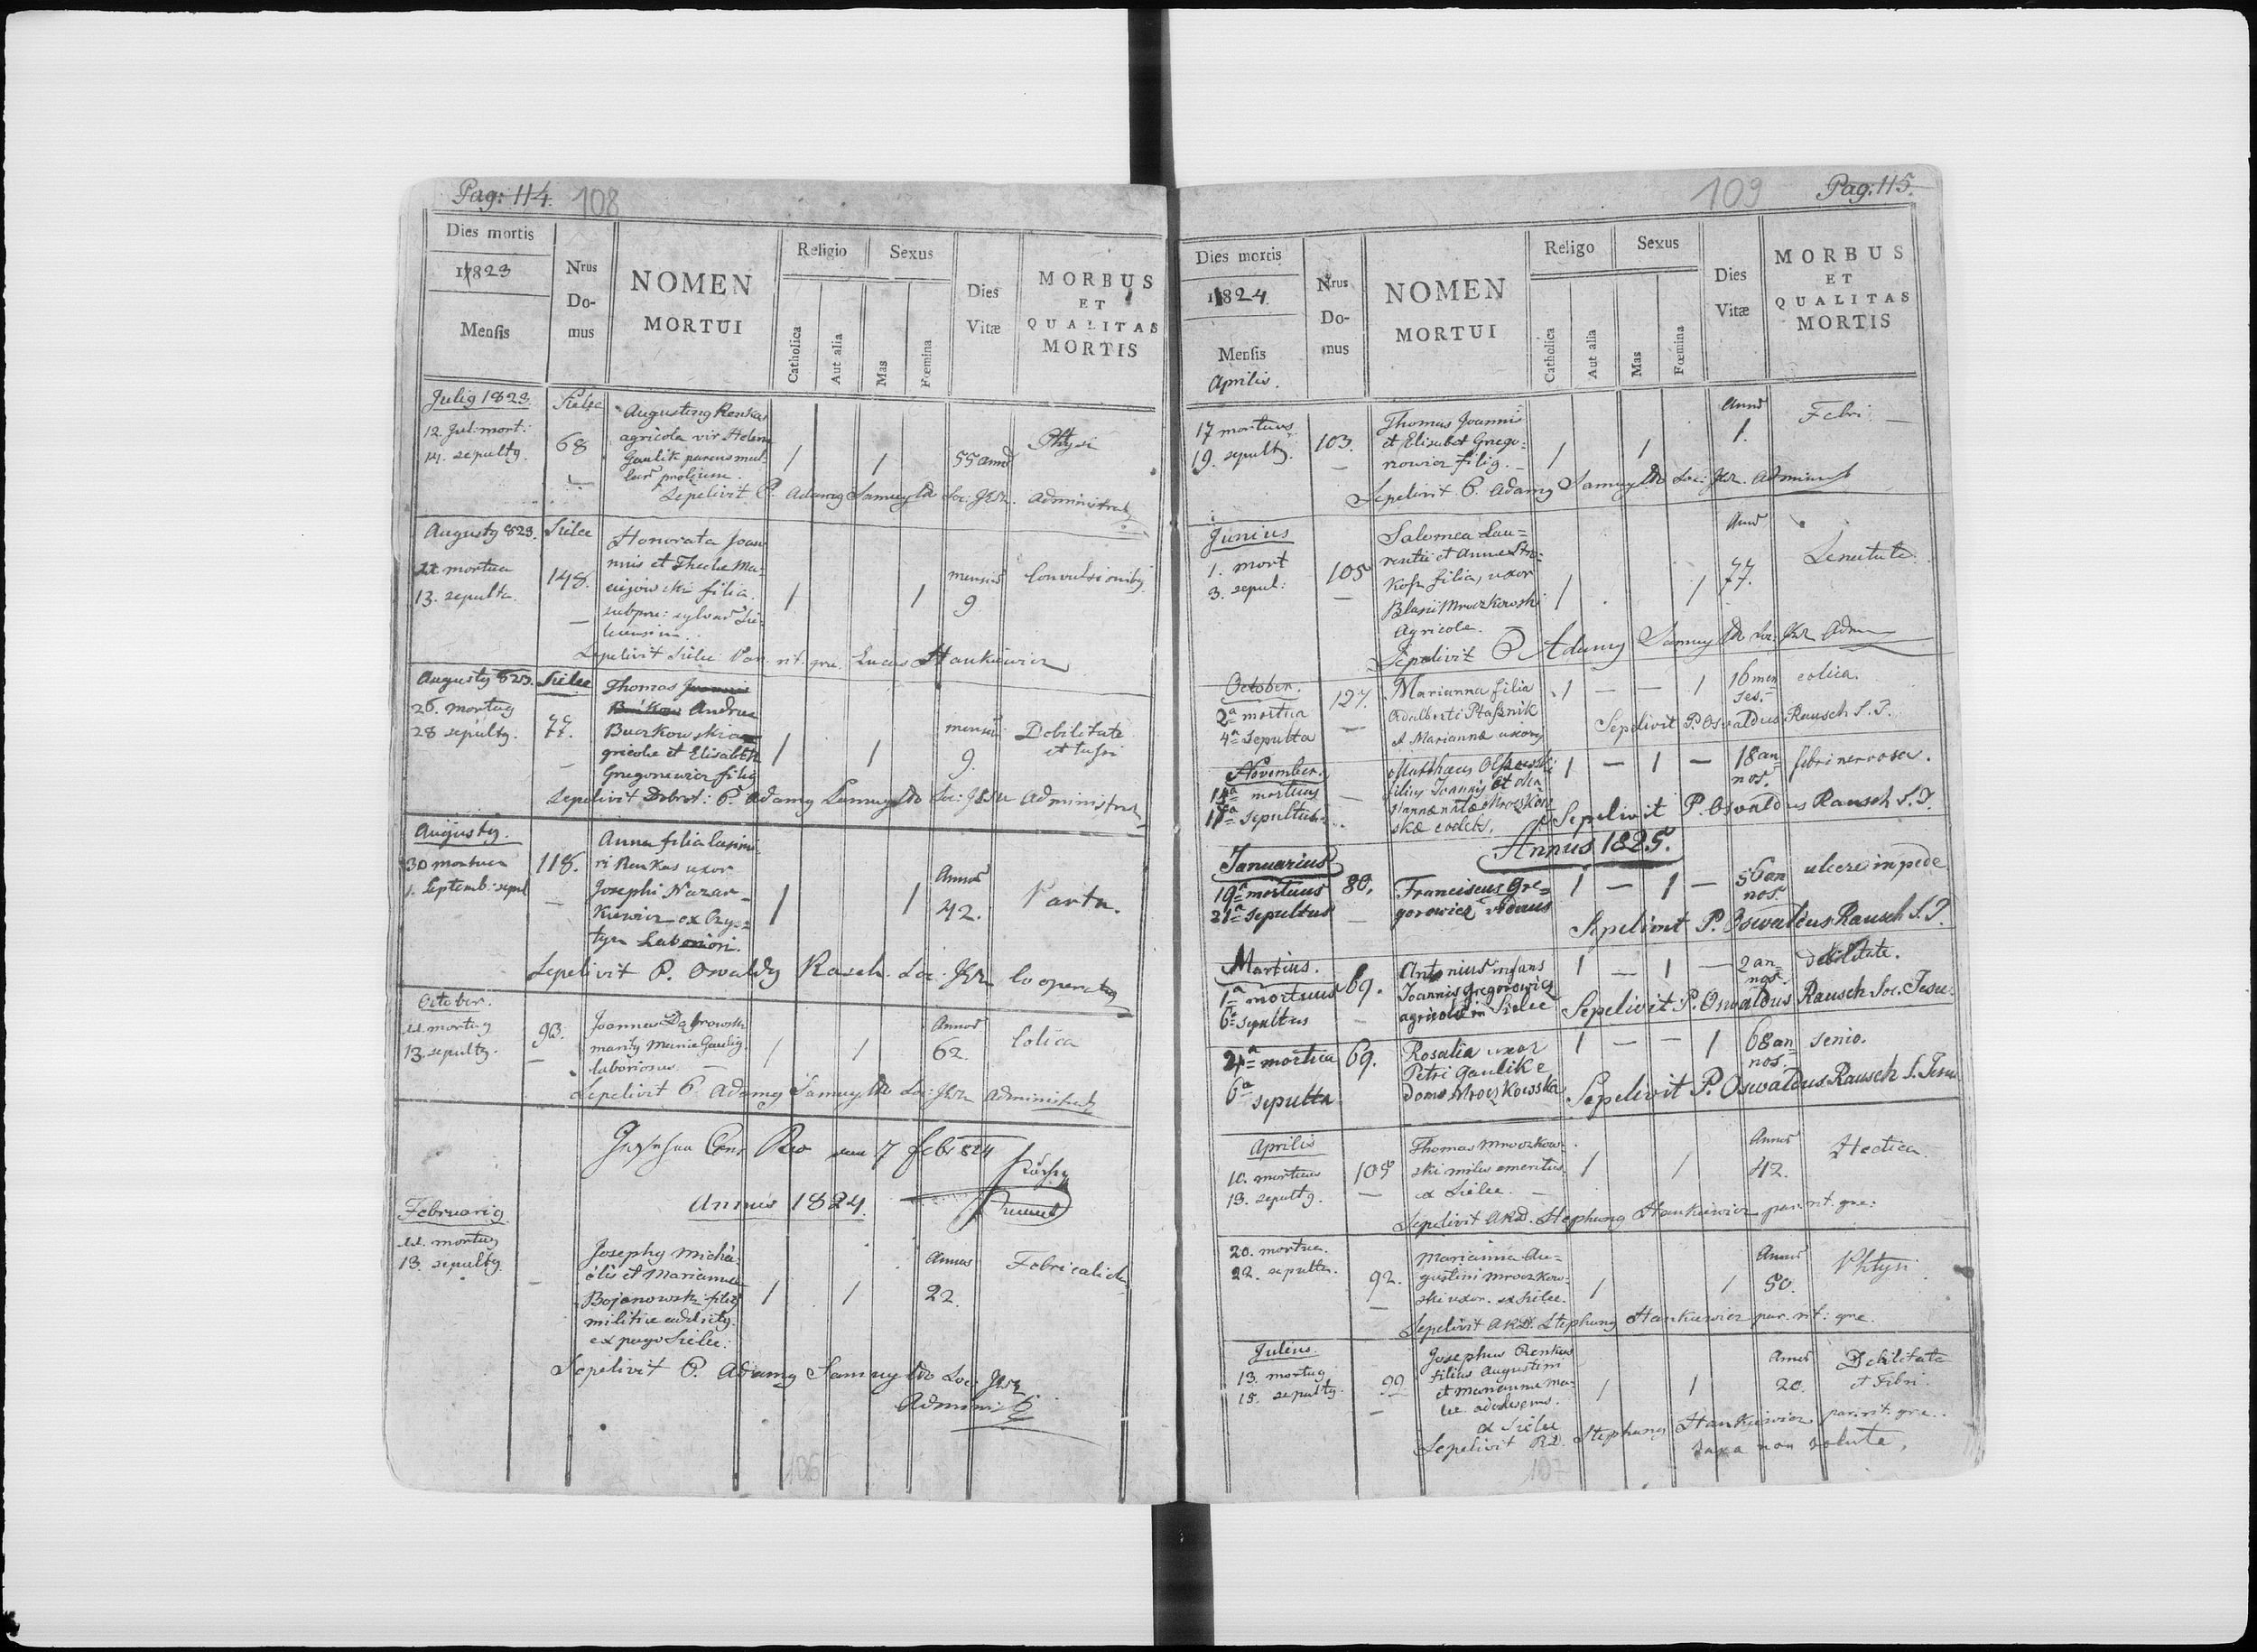 Pag: 114. 108
Dies mortis
1823
Mensis
Nrus
Do-
mus
NOMEN
MORTUI
Religio
Catholica
Aut alia
Sexus
Mas
Fœmina
Dies
Vitæ
MORBUS
ET
QUALITAS
MORTIS
Julig 1823.
12. Jul: mort:
14. sepultg.
Sielce
68
Augusting Renkas
agricola vir Helena
Gaulik parens mul-
prolium.
1 1 55 annor
Phtysi
Sepelivit P. Adamg Samuyllo Soc: Jesu. Administrat
Augustg 823.
mortua
13. sepulta.
Sielce
148.
Honorata Joan-
nis et Theclæ Ma-
ciejowski filia.
1 1
mensis
9
Convulsionibg
Sepelivit Sielce Par. rit. gre. Lucas Hankiewicz
Augustg 823.
26. mortug
28 sepultg.
Sielce
77.
Thomas
Andreæ
Buczkowski a-
gricolæ et Elisabeth
Gregorowicz filig
1 1
mensis
9.
Debilitate
et tussi
Sepelivit P. Adamg Samuyllo Soc: Jesu Administrat
Augustg.
30 mortua
1. Septemb: sepul
118.
Anna filia Casimi-
ri Renkas uxor
Josephi Nazar-
kiewicz ex Czy-
1 1
Annor
42.
Partu.
Sepelivit P. Oswaldg Rasch. Soc: Jesu Cooperatg
October.
11. mortug
13. sepultg.
93.
Joannes Dąbrowski
maritg Mariæ Gaulig.
laboriosus
1 1
Annor
62.
Colica
Sepelivit P. Adamg Samuyllo Soc: Jesu Administratg
7 febr 824
Annus 1824.
Februarig
11. mortug
13. sepultg.
Josephg Micha-
elis et Mariannæ
Bojanowski filig
militiæ addictg.
ex pago Sielce.
1 1
Annos
22.
Febri calida
Sepelivit P. Adamg Samuyllo Soc: Jesu
Adminis
106
109 Pag: 115.
Dies mortis
1824.
Mensis
Aprilis.
Nrus
Do-
mus
NOMEN
MORTUI
Religo
Catholica
Aut alia
Sexus
Mas
Fœmina
Dies
Vitæ
MORBUS
ET
QUALITAS
MORTIS
17 mortuus
19. sepultg.
103.
Thomas Joannis
et Elisabet Grego-
rowicz filig.
1 1
Annor
1.
Febri.
Sepelivit P. Adamg Samuyllo Soc: Jesu. Administ
Junius
1. mort
3. sepul:
105
Salomea Lau-
rentii et Annæ
filia, uxor
Blasii Mroczkowski
Agricolæ.
1 1
Annor
77.
Senectute.
Sepelivit P Adamg Samuyllo Soc: Jesu Adm
October.
2a mortua
4a sepulta
127.
Marianna filia
Adalberti Ptasznik
et Marianna uxoris
1 — — 1
16 men
ses.
colica.
Sepelivit P. Oswaldus Rausch S. J.
November.
mortuus
sepultus
Matthæus Olszewski
filius Joannis et Ma-
riannæ natæ Mroczkow-
skæ cœlebs.
1 — 1 —
18 an=
nos.
febri nervosa.
Sepelivit P. Oswaldus Rausch S. J.
Annus 1825.
Januarius
19a mortuus
21a sepultus
80.
Franciscus Gre=
gorowicz viduus
1 — 1 —
56 an
nos.
ulcere in pede
Sepelivit P. Oswaldus Rausch S. J.
Martius.
1a mortuus
6a sepultus
69.
Antonius infans
Joannis Gregorowicz
agricolæ in Sielce
1 — 1 —
2 an=
nos.
debilitate.
Sepelivit P. Oswaldus Rausch Soc. Jesu.
4a mortua
6a
sepulta
69.
Rosalia uxor
Petri Gaulik e
domo Mroczkowska
1 — — 1
68 an
nos.
senio.
Sepelivit P. Oswaldus Rausch S. Jesu
Aprilis
10. mortuus
13. sepultg.
105
Thomas Mroczkow-
ski miles emeritus
ex Sielce.
1 1
Annor
42.
Hectica.
Sepelivit ARD. Stephang Hankiewicz par. rit. gre:
20. mortua.
22. sepulta.
92.
Marianna Au=
gustini Mroczkow-
ski uxor. ex Sielce.
1 1
Annor
50.
Phtysi
Sepelivit ARD. Stephang Hankiewicz par. rit: gre.
Julius.
13. mortug
15. sepultg.
99
Josephus Renkas
filius Augustini
et Mariannæ
ex Sielce
1 1
Annor
20.
Debilitate
et Febri.
Sepelivit RD. Stephang Hankiewicz par. rit. gre.
taxa non soluta,
107